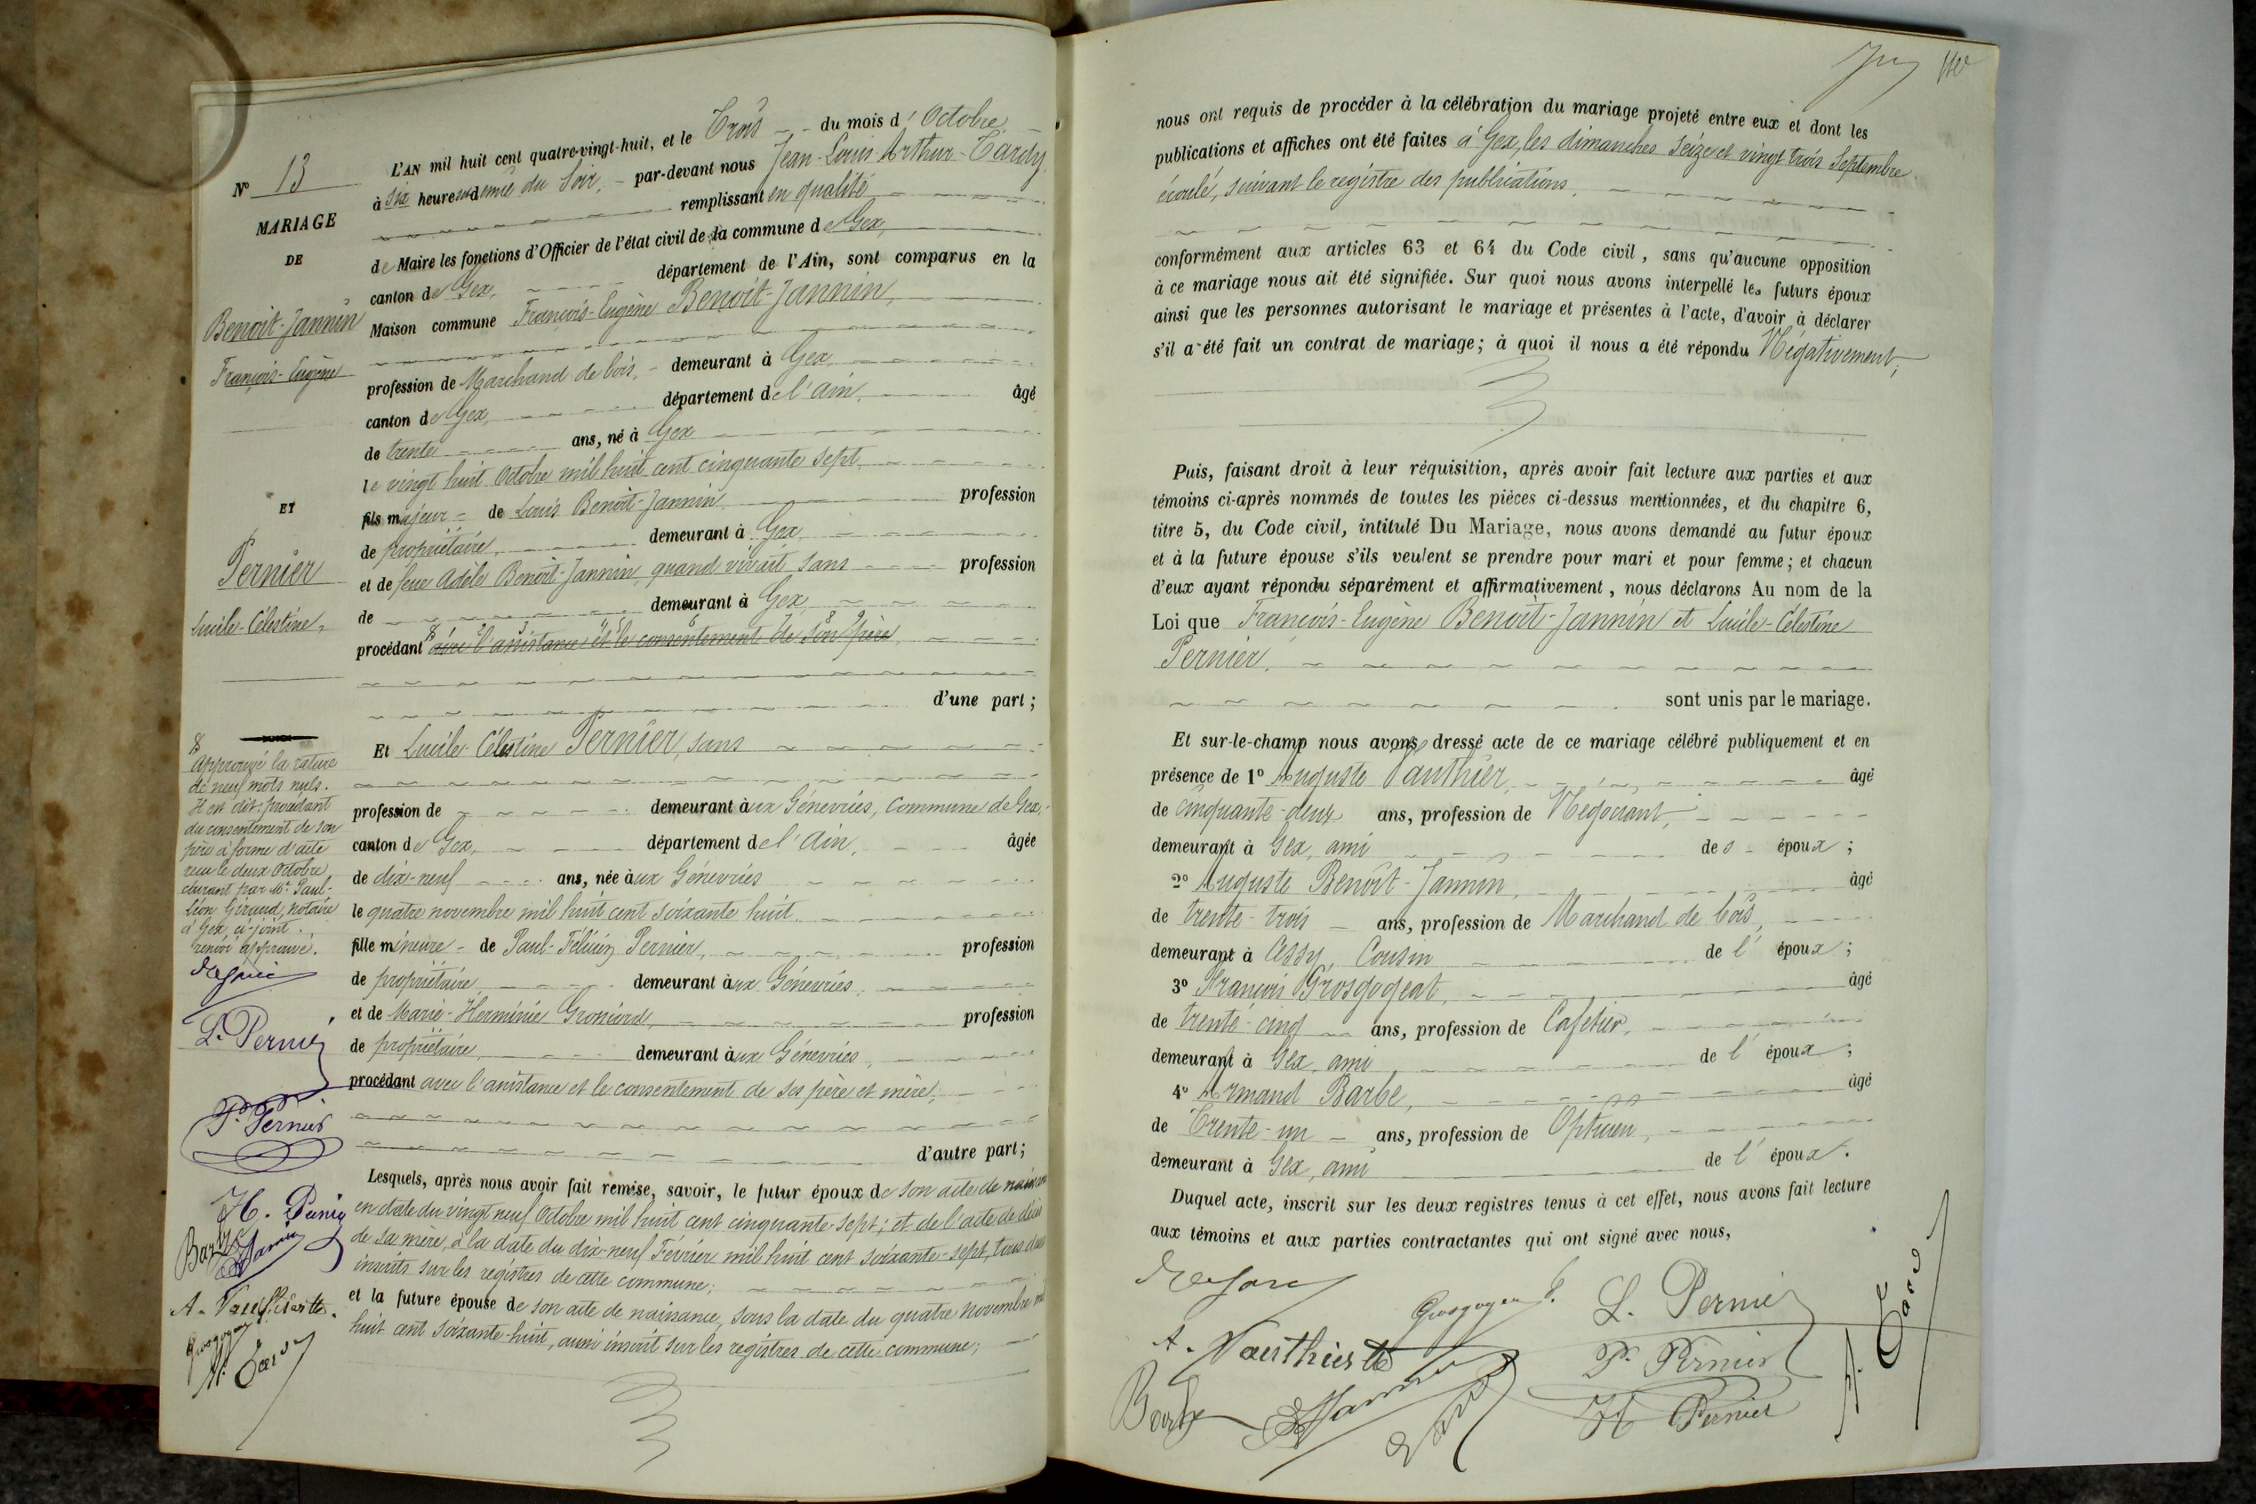 N° 13
MARIAGE
DE
Benoit-Jannin
François-Eugène
ET
Pernier
Lucile-Célestine,
Approuvé la rature
de neuf mots nuls.
Il est dit: procédant
du consentement de son
père à forme d'acte
reçu le deux Octobre
courant par Me Paul-
Léon Giraud, notaire
à Gex, ci-joint.
renvoi approuvé.
L. Pernier
P. Pernier
H. Pernier
Barbe
A. Vauthier
Grosgogeat
A. Tardy
L'AN mil huit cent quatre-vingt-huit, et le Trois du mois d'Octobre
à six heures et demie du Soir, par-devant nous Jean-Louis-Arthur-Tardy
remplissant en qualité
de Maire les fonctions d'Officier de l'état civil de la commune de Gex,
canton de Gex, département de l'Ain, sont comparus en la
Maison commune François-Eugène Benoit-Jannin,
profession de Marchand de bois, demeurant à Gex,
canton de Gex, département de l'Ain, âgé
de trente ans, né à Gex
le vingt huit Octobre mil huit cent cinquante sept
fils majeur de Louis Benoit-Jannin profession
de propriétaire, demeurant à Gex
et de feue Adèle Benoit-Jannin, quand vivait sans profession
de demeurant à Gex
procédant avec l'assistance et le consentement de son père
d'une part;
Et Lucile-Célestine Pernier, sans
profession de demeurant aux Génevriés, Commune de Gex,
canton de Gex, département de l'Ain, âgée
de dix-neuf ans, née aux Génevriés
le quatre novembre mil huit cent soixante huit
fille mineure de Paul-Félicien Pernier, profession
de propriétaire demeurant aux Génevriés,
et de Marie-Herminie profession
de propriétaire, demeurant aux Génevriés,
procédant avec l'assistance et le consentement de ses père et mère,
d'autre part;
Lesquels, après nous avoir fait remise, savoir, le futur époux de son acte de
en date du vingt neuf Octobre mil huit cent cinquante-sept; et de l'acte de décès
de sa mère, à la date du dix-neuf Février mil huit cent soixante-sept, tous deux
inscrits sur les registres de cette commune;
et la future épouse de son acte de naissance, sous la date du quatre novembre mil
huit cent soixante-huit, aussi inscrit sur les registres de cette commune;
nous ont requis de procéder à la célébration du mariage projeté entre eux et dont les
publications et affiches ont été faites à Gex, les dimanches Seize et vingt trois Septembre
écoulé, suivant le registre des publications,
conformément aux articles 63 et 64 du Code civil, sans qu'aucune opposition
à ce mariage nous ait été signifiée. Sur quoi nous avons interpellé les futurs époux
ainsi que les personnes autorisant le mariage et présentes à l'acte, d'avoir à déclarer
s'il a été fait un contrat de mariage; à quoi il nous a été répondu Négativement,
Puis, faisant droit à leur réquisition, après avoir fait lecture aux parties et aux
témoins ci-après nommés de toutes les pièces ci-dessus mentionnées, et du chapitre 6,
titre 5, du Code civil, intitulé Du Mariage, nous avons demandé au futur époux
et à la future épouse s'ils veulent se prendre pour mari et pour femme; et chacun
d'eux ayant répondu séparément et affirmativement, nous déclarons Au nom de la
Loi que François-Eugène Benoit-Jannin et Lucile-Célestine
Pernier,
sont unis par le mariage.
Et sur-le-champ nous avons dressé acte de ce mariage célébré publiquement et en
présence de 1° Auguste Vauthier, âgé
de cinquante-deux ans, profession de Négociant,
demeurant à Gex, ami des époux;
2° Auguste Benoit-Jannin, âgé
de trente-trois ans, profession de Marchand de bois,
demeurant à Cessy, Cousin de l'époux;
3° François Grosgogeat, âgé
de trente-cinq ans, profession de Cafetier,
demeurant à Gex, ami de l'époux;
4° Armand Barbe, âgé
de Trente-un ans, profession de Opticien,
demeurant à Gex, ami de l'époux.
Duquel acte, inscrit sur les deux registres tenus à cet effet, nous avons fait lecture
aux témoins et aux parties contractantes qui ont signé avec nous,
Grosgogeat
L. Pernier
A. Vauthier
P. Pernier
Barbe
H Pernier
A. Tardy